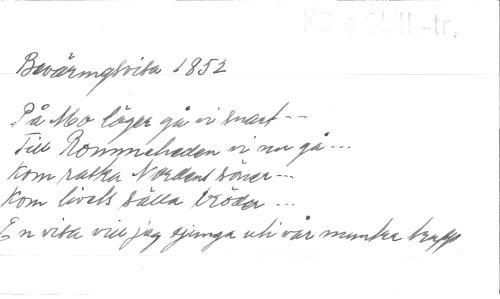 KB:s Skill-tr.
Beväringsvisa 1852
På Mo läger gå vi snart --
Till Rommeheden vi nu gå ---
Kom raska Nordens söner ---
Kom livets sälla bröder ---
En visa vill jag sjunga uti vår muntra tropp